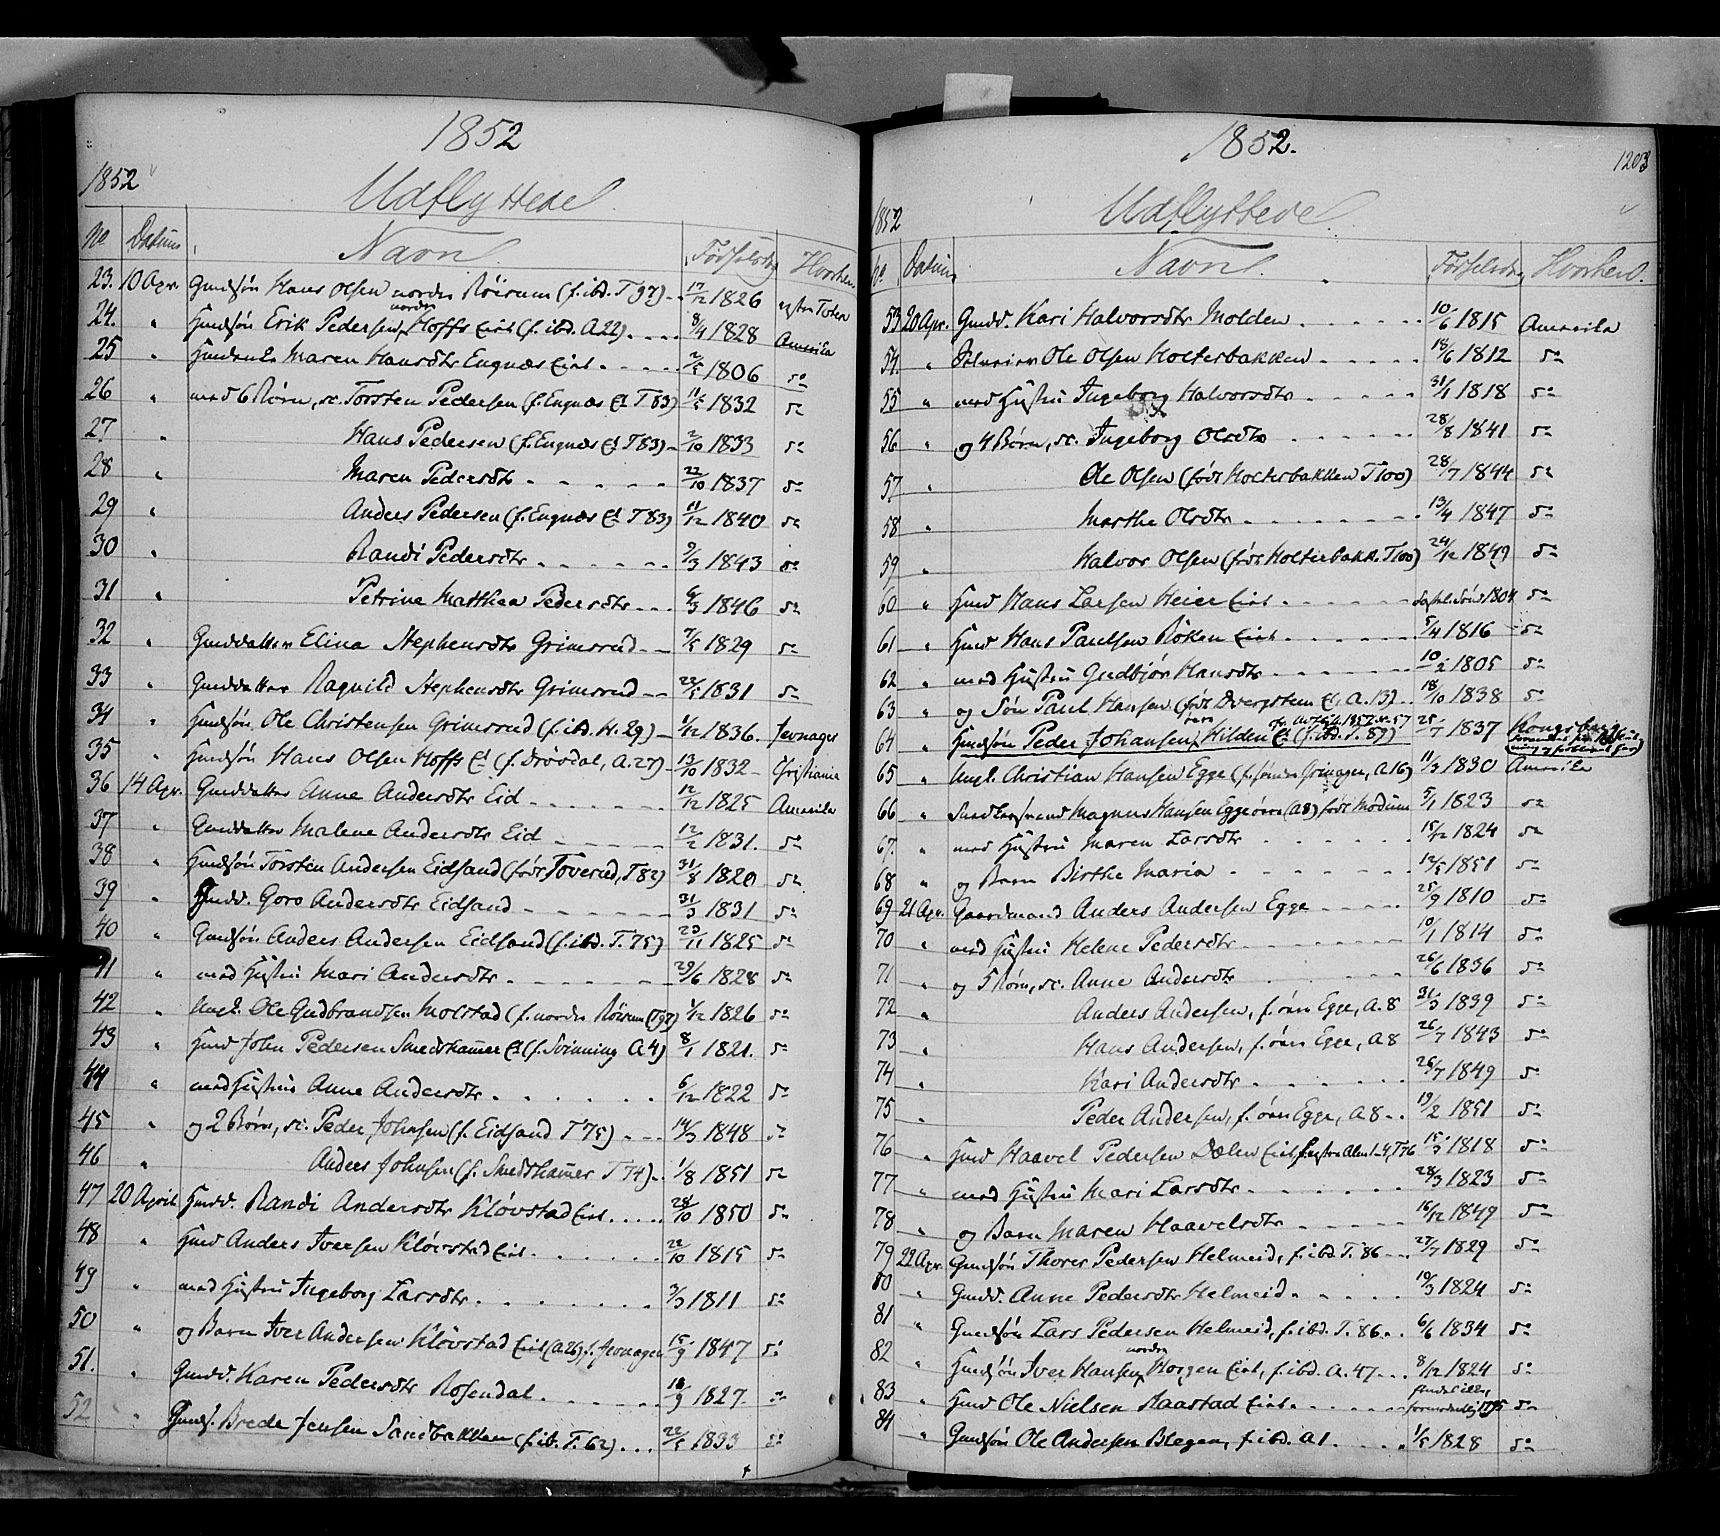 1852
1852
Udflyttede
No Datum Navn Fødselsdag Hvorhen
23. 10 Apr. Gmdsøn Hans Olsen nordre Röisum (f. ibd. T 97) 17/12 1826 østre Toten
24. " Hmdsøn Erik Pedersen nordre Hoffs Eiet (f. ibd. A 22) 8/4 1828 Amerika
25 " Hmdenke Maren Hansdtr Engnæs Eiet 2/5 1806 do
26 " med 6 Börn, sc. Torsten Pedersen (f. Engnæs Et T 83) 11/5 1832 do
27 " Hans Pedersen (f. Engnæs Et T 83) 2/10 1833 do
28 " Maren Pedersdtr 22/10 1837 do
29 " Anders Pedersen (f. Engnæs Et T 83) 11/12 1840 do
30 " Randi Pedersdtr 9/3 1843 do
31 " Petrine Matthea Pedersdtr 6/3 1846 do
32 " Gmddatter Elina Stephensdtr Grimsrud 7/5 1829 do
33 " Gmddatter Ragnild Stephensdtr Grimsrud 22/5 1831 do
34 " Hmdsön Ole Christensen Grimsrud (f. ibd. H. 29) 1/12 1836. Jevnager
35 " Hmdsön Hans Olsen Hoffs Et (f. Drövdal, A. 27) 13/10 1832 Christiania
36 14 Apr. Gmddatter Anne Andersdtr Eid 12/12 1825 Amerika
37 " Gmddatter Malene Andersdtr Eid 12/2 1831. do
38 " Hmdsön Torsten Andersen Eidsand (født Toverud, T 82) 31/8 1820 do
39 " Hmdd. Goro Andersdtr Eidsand 31/3 1831 do
40 " Gmdsön Anders Andersen Eidsand (f. ibd. T. 75) 23/11 1825 do
41 " med Hustru Mari Andersdtr 29/6 1828 do
42 " Ungk. Ole Gudbrandsen Molstad (f. nordre Röisum T 97) 1/12 1826 do
43 " Hmd John Pedersen Smedshamer Et (f. Svinning A 4) 8/1 1821. do
44 " med Hustru Anne Andersdtr 6/12 1822 do
45 " og 2 Börn, sc. Peder Johnsen (f. Eidsand T 75) 14/3 1848 do
46 " Anders Johnsen (f. Smedshamer T 74) 1/8 1851 do
47 20 April Hmdd. Randi Andersdtr Klövstad Eiet 28/10 1850 do
48 " Hmd Anders Iversen Klövstad Eiet 22/10 1815 do
49 " med Hustru Ingeborg Larsdtr 3/3 1811 do
50 " og Barn Iver Andersen Klövstad Eiet (A 26) f. Jevnager 15/9 1847 do
51. " Gmdd. Karen Pedersdtr Rosendal 18/9 1827. do
52 " Gmds. Brede Jensen Sandbakken (f. ib. T. 62) 22/5 1833 do
1852.
1203
1852
Udflyttede
No Datum Navn Fødselsdag Hvorhen.
53 20 Apr. Gmdd. Kari Halvorsdtr Molden 10/6 1815 Amerika
54. " Ole Olsen Holterbakken 18/6 1812 do
55 " med Hustru Ingeborg Halvorsdtr 31/1 1818 do
56 " og 4 Börn, sc. Ingeborg Olsdtr 28/8 1841 do
57 " Ole Olsen (født Holterbakken T 100) 28/7 1844 do
58 " Marthe Olsdtr 13/4 1847 do
59 " Halvor Olsen (født Holterbakk. T 100) 24/12 1849 do
60 " Hmd Hans Larsen Heier Eiet 1804 do
61 " Hmd Hans Paulsen Röken Eiet 5/4 1816 do
62 " med Hustru Gudbjör Hansdtr 10/2 1805 do
63 " og Sön Paul Hansen (født Dvergsten Et, A. 13) 18/10 1838 do
64 " Hmdsön Peder Johansen Kilden Et (f. ibd. T. 87) 25/7 1837 Kongsberg
65 " Ungk. Christian Hansen Egge (f. søndre Grinager, A 16) 11/3 1830 Amerika
66 " Magnus Hansen Egge övre (A 8) født Modum 5/1 1823 do
67. " med Hustru Maren Larsdtr 15/12 1824 do
68 " og Barn Birthe Maria 12/5 1851 do
69 21 Apr. Gaardmand Anders Andersen Egge 25/9 1810 do
70 " med Hustru Helene Pedersdtr 10/1 1814 do
71 " og 5 Börn, sc. Anne Andersdtr 26/6 1836 do
72 " Anders Andersen, f. övre Egge, A. 8 31/3 1839 do
73 " Hans Andersen, f. övre Egge, A 8 26/7 1843 do
74 " Kari Andersdtr 26/7 1849 do
75 " Peder Andersen, f. övre Egge, A 8 19/2 1851 do
76 " Hmd Haavel Pedersen Dælen Eiet 15/3 1818 do
77 " med Hustru Mari Larsdtr 28/3 1823 do
78 " og Barn Maren Haavelsdtr 16/12 1849 do
79 22 Apr. Gmdsön Thorer Pedersen Helmeid, f. ibd. T. 86 27/7 1829 do
80 " Gmdd. Anne Pedersdtr Helmeid 19/3 1824 do
81 " Gmdsön Lars Pedersen Helmeid, f. ibd. T. 86 6/6 1834 do
82 " Hmdsön Iver Hansen nordre Horgen Eiet, f. ibd. A. 47 8/12 1824 do
83 " Hmd Ole Nielsen Raastad Eiet 1795 do
84 " Gmdsön Ole Andersen Blegen, f. ibd. A 1 1/5 1828 do